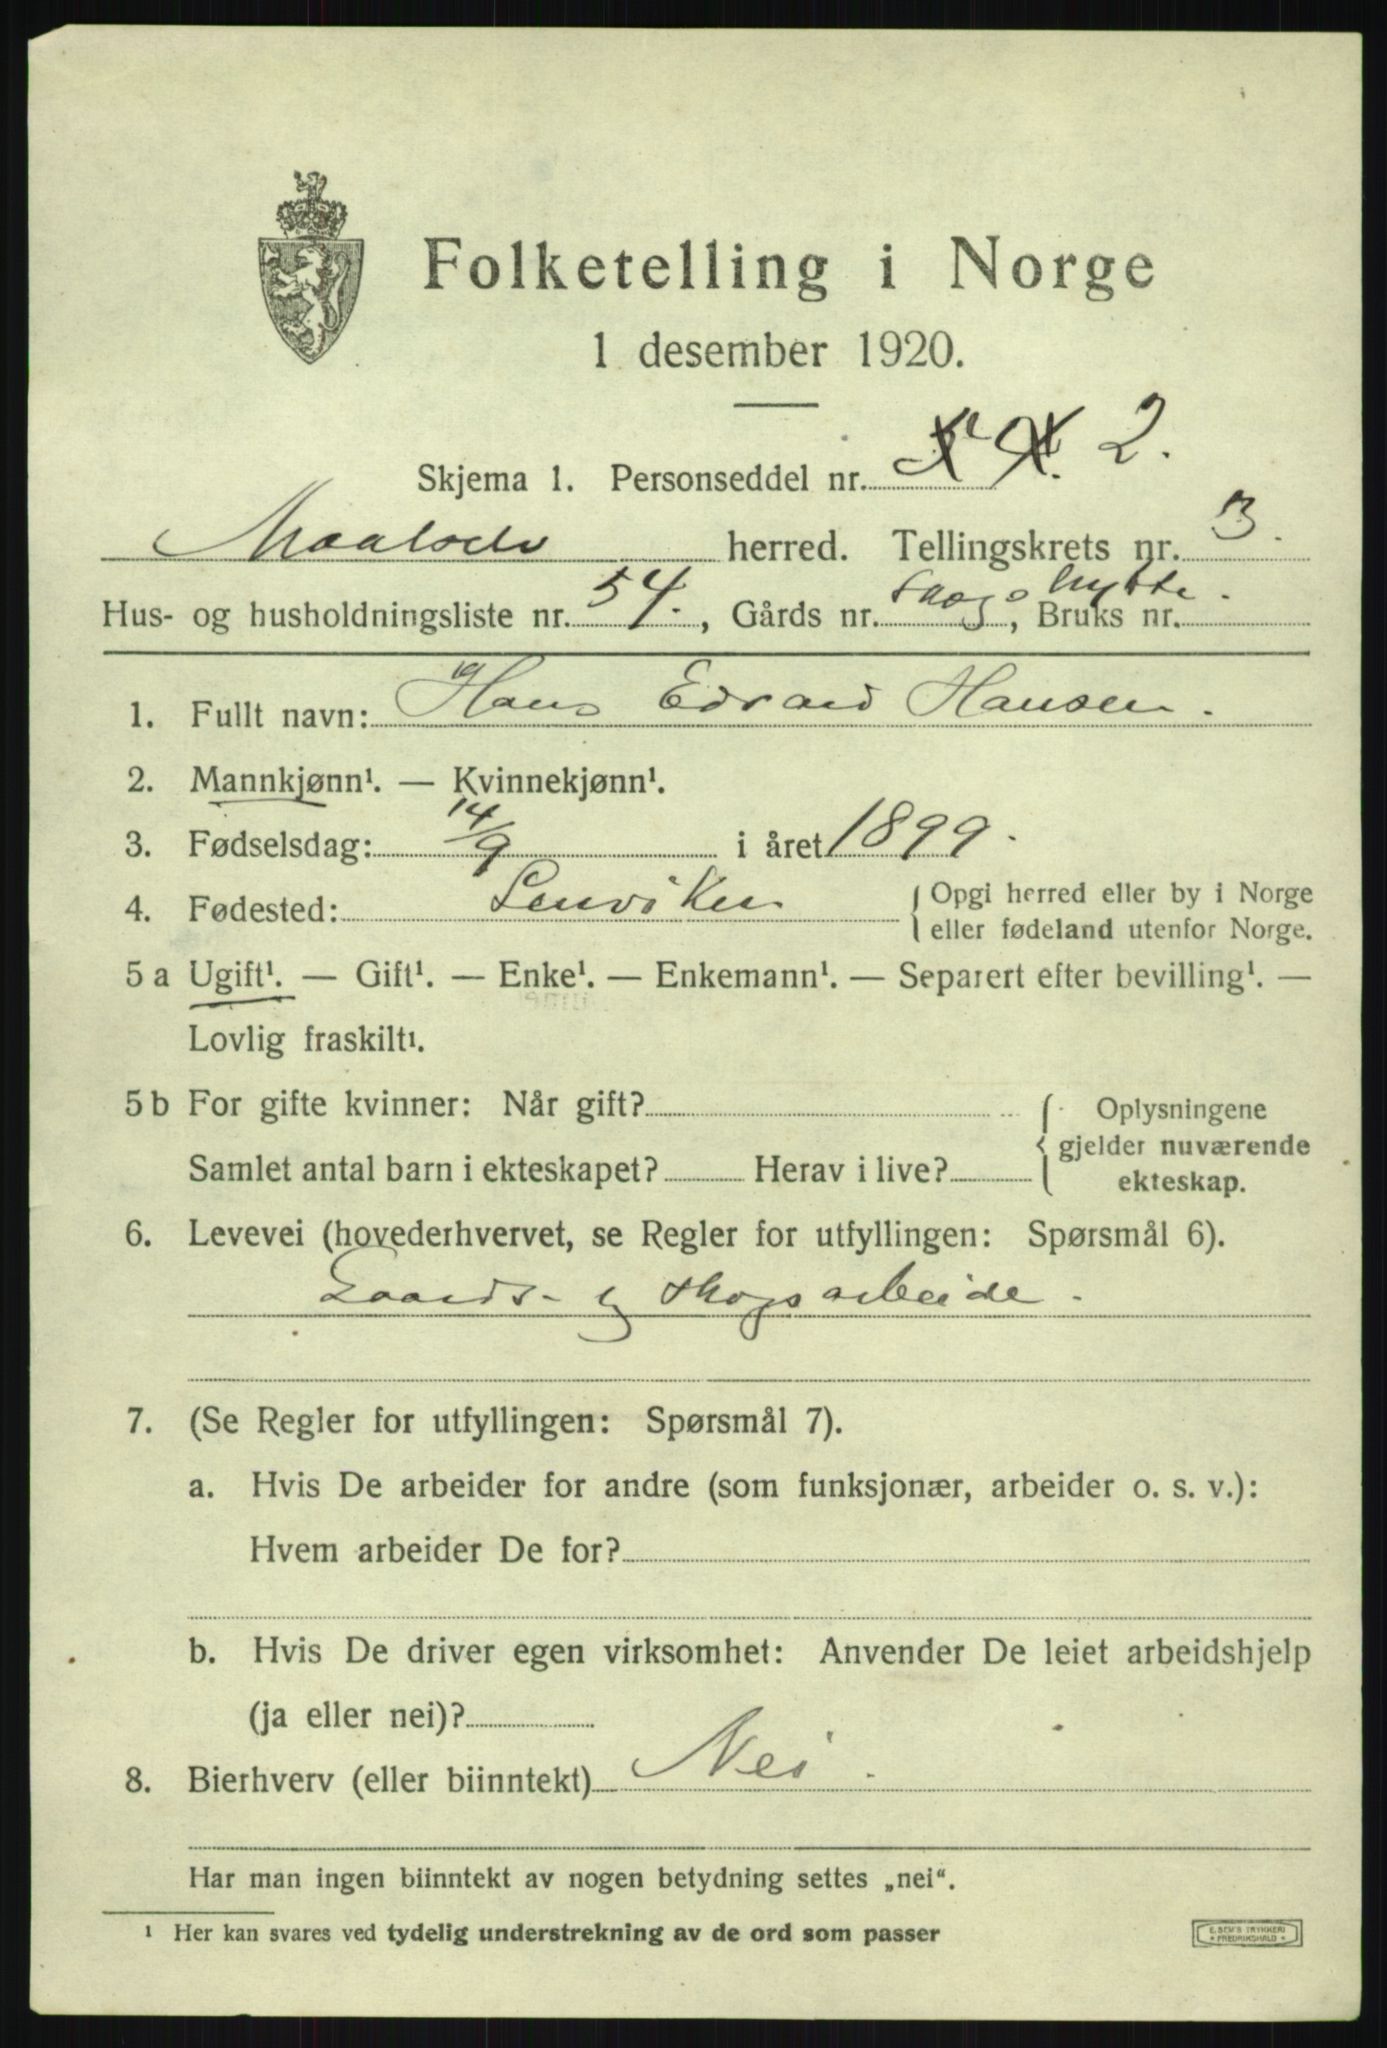 Folketelling i Norge
1 desember 1920.
Skjema 1. Personseddel nr. 2.
Maalselv herred. Tellingskrets nr. 3.
Hus- og husholdningsliste nr. 54., Gårds nr. Skogshytte., Bruks nr.
1. Fullt navn: Hans Edvard Hansen.
2. Mannkjønn¹. — Kvinnekjønn¹.
3. Fødselsdag: 14/9 i året 1899.
4. Fødested: Lenviken { Opgi herred eller by i Norge
eller fødeland utenfor Norge.
5 a Ugift¹. — Gift¹. — Enke¹. — Enkemann¹. — Separert efter bevilling¹. —
Lovlig fraskilt¹.
5 b For gifte kvinner: Når gift? { Oplysningene
gjelder nuværende
Samlet antal barn i ekteskapet? Herav i live? ekteskap.
6. Levevei (hovederhvervet, se Regler for utfyllingen: Spørsmål 6).
Gaards- og skogsarbeide.
7. (Se Regler for utfyllingen: Spørsmål 7).
a. Hvis De arbeider for andre (som funksjonær, arbeider o. s. v.):
Hvem arbeider De for?
b. Hvis De driver egen virksomhet: Anvender De leiet arbeidshjelp
(ja eller nei)?
8. Bierhverv (eller biinntekt) Nei.
Har man ingen biinntekt av nogen betydning settes „nei“.
¹ Her kan svares ved tydelig understrekning av de ord som passer
E. SEM'S TRYKKERI
FREDRIKSHALD